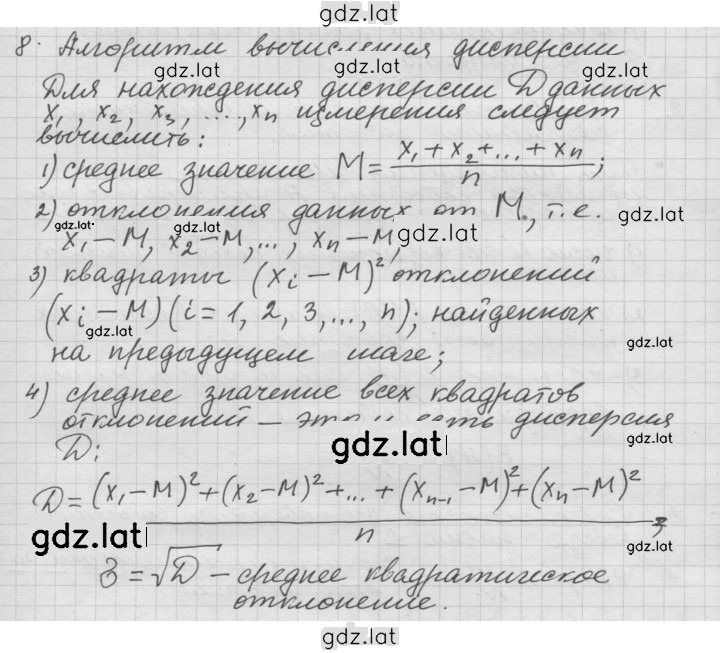 gdz.lat
8. Алгоритм вычисления дисперсии
gdz.lat gdz.lat gdz.lat
Для нахождения дисперсии D данных
x₁, x₂, x₃, ..., xₙ измерения следует
вычислить:
1) среднее значение M = (x₁ + x₂ + ... + xₙ)/n;
2) отклонения данных от M, т.е.
gdz.lat
gdz.lat
x₁ – M, x₂ – M, ..., xₙ – M,
gdz.lat
3) квадраты (xᵢ – M)² отклонений
(xᵢ – M) (i = 1, 2, 3, ..., n); найденных
gdz.lat
на предыдущем шаге;
gdz.lat
4) среднее значение всех квадратов
отклонений – это и есть дисперсия
gdz.lat
gdz.lat
D:
D = ((x₁ – M)² + (x₂ – M)² + ... + (xₙ₋₁ – M)² + (xₙ – M)²)/n;
gdz.lat
gdz.lat
З = √D – среднее квадратическое
отклонение.
gdz.lat